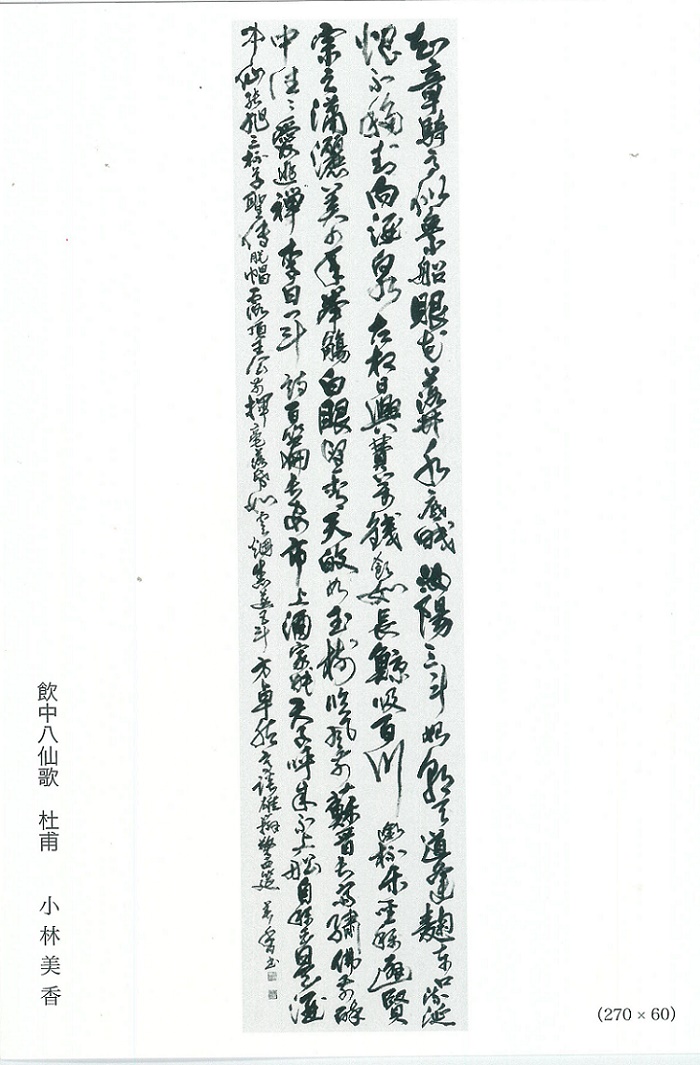 知章騎馬似乘船眼花落井水底眠汝陽三斗始朝天道逢麹車口流涎
恨不移封向酒泉左相日興費萬錢飲如長鯨吸百川銜杯樂聖稱避賢
宗之瀟灑美少年舉觴白眼望青天皎如玉樹臨風前蘇晉長齋繡佛前醉
中往々愛逃禅李白一斗詩百篇長安市上酒家眠天子呼来不上船自稱臣是酒
中仙張旭三杯草聖傳脱帽露頂王公前揮毫落紙如雲烟焦遂五斗方卓然高談雄辯驚四筵 美香書
飲中八仙歌 杜甫 小林美香
(270 × 60)